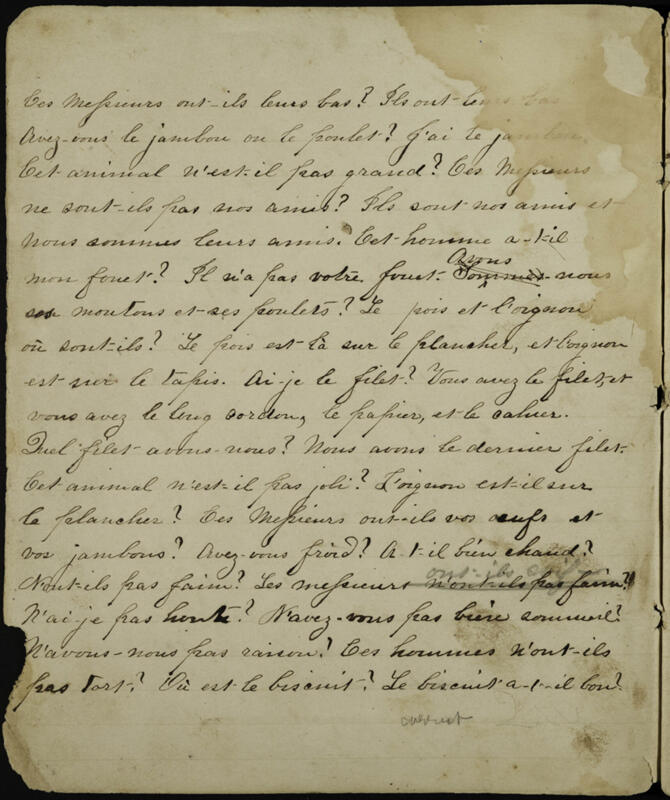 Ces Messieurs ont-ils leurs bas? Ils ont leurs bas
Avez-vous le jambon ou le poulet? J'ai le jambon.
Cet animal n'est-il pas grand? Ces Messieurs
ne sont-ils pas nos amis? Ils sont nos amis et
nous sommes leurs amis. Cet homme a-t-il
Avons
mon fouet? Il n'a pas votre fouet. Sommes-nous
ses moutons et ses poulets? Le pois et l'oignon
où sont-ils? Le pois est là sur le plancher, et l'oignon
est sur le tapis. Ai-je le filet? Vous avez le filet, et
vous avez le long cordon, le papier, et le cahier.
Quel filet avons-nous? Nous avons le dernier filet.
Cet animal n'est-il pas joli? L'oignon est-il sur
le plancher? Ces Messieurs ont-ils vos œufs et
vos jambons? Avez-vous froid? A-t-il bien chaud?
ont-ils
N'ont-ils pas faim? Les messieurs n'ont-ils pas faim?
N'ai-je pas honte? N'avez-vous pas bien sommeil?
N'avons-nous pas raison? Ces hommes n'ont-ils
pas tort? Où est le biscuit? Le biscuit a-t-il bon?